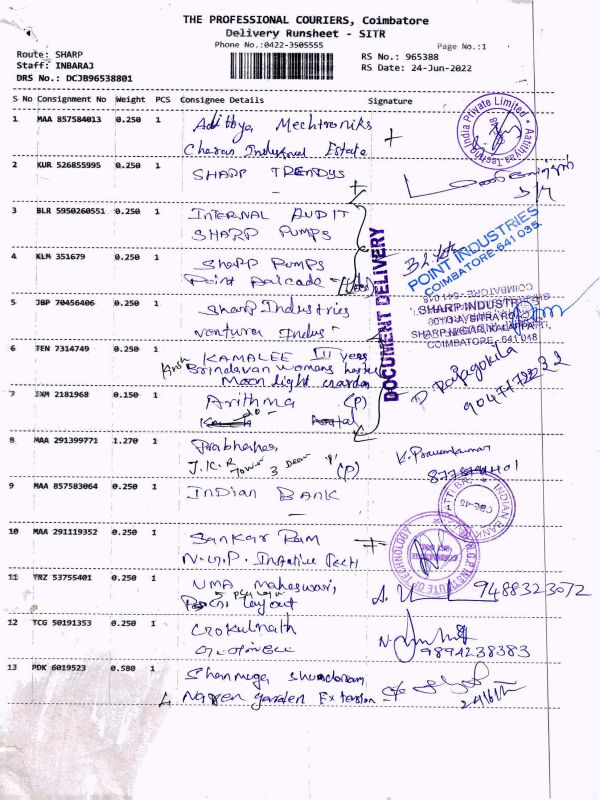 THE PROFESSIONAL COURIERS, Coimbatore
Delivery Runsheet - SITR
Phone No.:0422-3505555
Page No.:1
Route: SHARP
RS No.: 965388
Staff: INBARAJ
RS Date: 24-Jun-2022
DRS No.: DCJB96538801
S No Consignment No Weight PCS Consignee Details Signature
1 MAA 857584013 0.250 1 Adithya Mechtroniks
Cheran Industrial Estate
Aadithyaa Techno India Private Limited
2 KUR 526855995 0.250 1 SHARP TRENDYS
3 BLR 5950260551 0.250 1 INTERNAL AUDIT
SHARP PUMPS
POINT INDUSTRIES
COIMBATORE-641 035.
DOCUMENT DELIVERY
4 KLM 351679 0.250 1 Sharp Pumps
Point
5 JBP 70456406 0.250 1 Sharp Industries
Ventura Indus
SHARP INDUSTRIES
COIMBATORE - 641 018
6 TEN 7314749 0.250 1 KAMALEE III year
Brindavan womens hostel
Moon light garden
7 IXM 2181968 0.150 1 Arithma (P)
P Rajagokila
8 MAA 291399771 1.270 1 Prabhakar
J.K.R Tower 3 Door (P)
K. Praveenkumar
9 MAA 857583064 0.250 1 INDIAN BANK
INDIAN BANK
10 MAA 291119352 0.250 1 Sankar Ram
N.G.P. Initiative Tech
N.G.P. INSTITUTE OF TECHNOLOGY
11 TRZ 53755401 0.250 1 UMA Maheswari,
layout
9488323072
12 TCG 50191353 0.250 1 Gokulnath
9894238383
13 PDK 6019523 0.580 1 Shanmuga Shundaram,
garden Extension